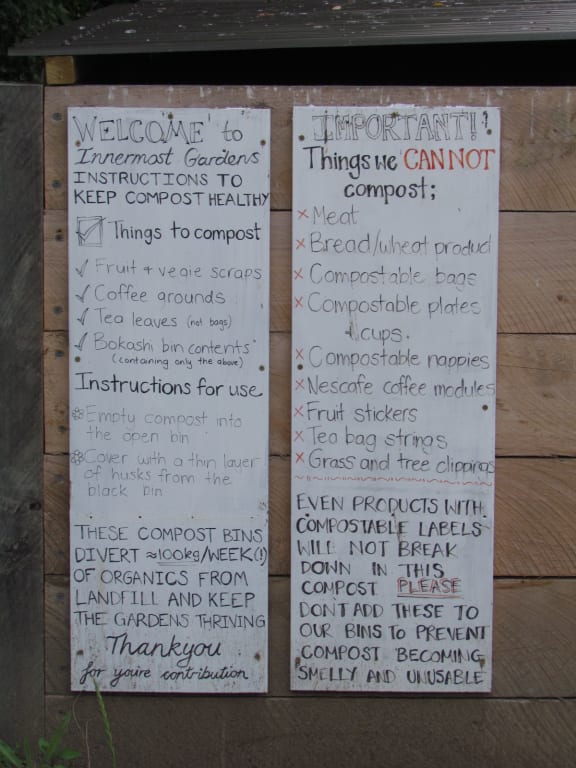 WELCOME to
Innermost Gardens
INSTRUCTIONS TO
KEEP COMPOST HEALTHY
☑ Things to compost
✓ Fruit + vegie scraps
✓ Coffee grounds
✓ Tea leaves (not bags)
✓ Bokashi bin contents
(containing only the above)
Instructions for use
Empty compost into
the open bin
Cover with a thin layer
of husks from the
black bin
THESE COMPOST BINS
DIVERT ≈100kg/WEEK(!)
OF ORGANICS FROM
LANDFILL AND KEEP
THE GARDENS THRIVING
Thankyou
for you're contribution
IMPORTANT!!
Things we CANNOT
compost;
× Meat
× Bread/wheat product
× Compostable bags
× Compostable plates
+ cups.
× Compostable nappies
× Nescafe coffee modules
× Fruit stickers
× Tea bag strings
× Grass and tree clippings
EVEN PRODUCTS WITH
COMPOSTABLE LABELS
WILL NOT BREAK
DOWN IN THIS
COMPOST PLEASE
DON'T ADD THESE TO
OUR BINS TO PREVENT
COMPOST BECOMING
SMELLY AND UNUSABLE